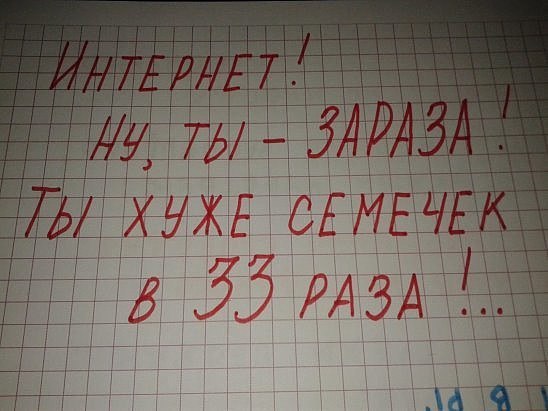 Интернет!
Ну, ты - ЗАРАЗА!
Ты хуже семечек
в 33 раза!...